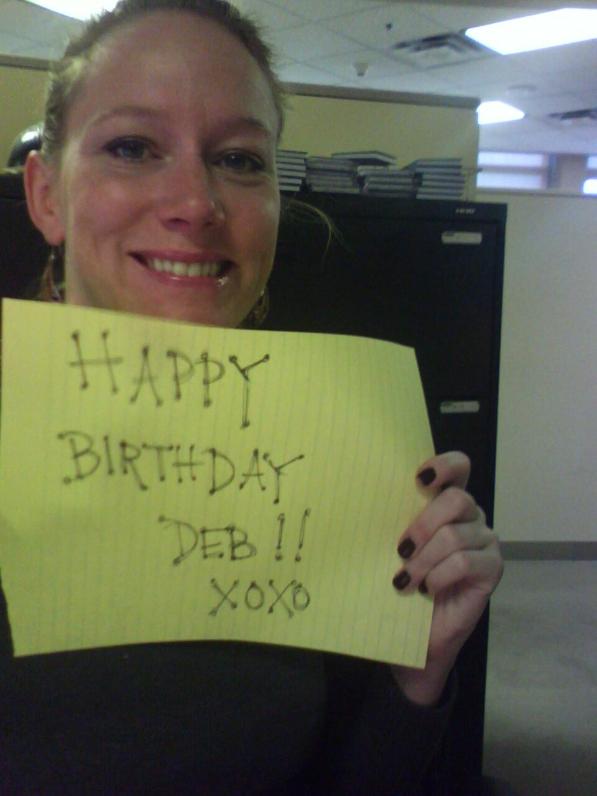 HAPPY
BIRTHDAY
DEB !!
XOXO